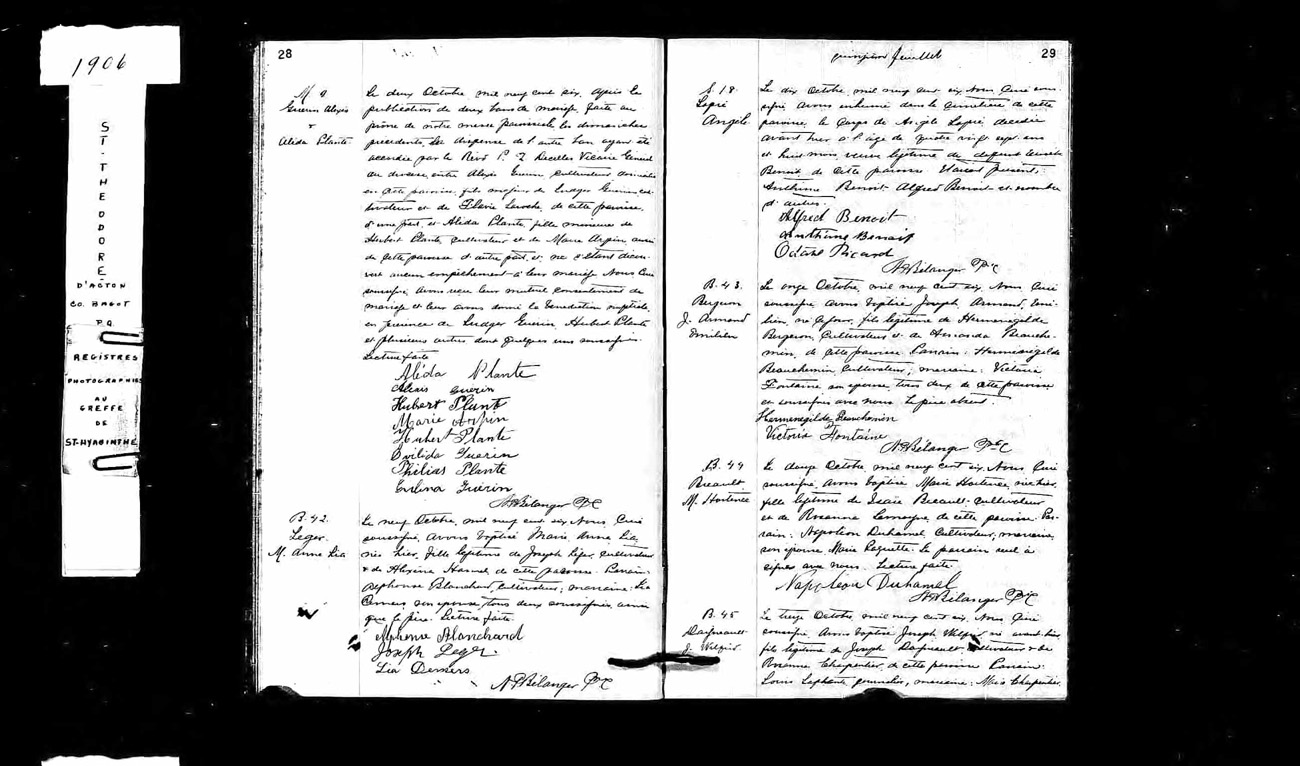 1906
ST-THEODORE
D'ACTON
CO. BAGOT
P.Q.
REGISTRES
PHOTOGRAPHIES
AU
GREFFE
DE
ST-HYACINTHE
28
M
Guerin Alexis
&
Alida Plante
Le deux Octobre mil neuf cent six, après la
publication de deux bans de mariage, faite au
prône de notre messe paroissiale les dimanches
précédents la dispense de l'autre ban ayant été
accordée par le Révd P. Z Decelles Vicaire Général
du diocèse, entre Alexis Guerin cultivateur domicilié
en cette paroisse, fils majeur de Ludger Guerin cul-
tivateur et de Flavie Laroche, de cette paroisse,
d'une part, et Alida Plante, fille mineure de
Hubert Plante, cultivateur et de Marie Arpin, aussi
de cette paroisse d'autre part, et ne s'étant décou-
vert aucun empêchement à leur mariage Nous Curé
soussigné, avons reçu leur mutuel consentement de
mariage et leur avons donné la bénédiction nuptiale,
en présence de Ludger Guerin, Hubert Plante
et plusieurs autres dont quelques uns soussignés.
Lecture faite
Alida Plante
Alexis Guerin
Hubert Plante
Marie Arpin
Hubert Plante
Ovilida Guerin
Philias Plante
Guérin
Bélanger Ptre C
B. 42.
Leger.
M. Anne Lia
Le neuf Octobre, mil neuf cent six Nous Curé
soussigné, avons baptisé Marie, Anne Lia,
née hier, fille légitime de Joseph Léger, cultivateur
& de Hamel de cette paroisse. Parrain:
Alphonse Blanchard, Cultivateur; marraine: Lia
Demers son épouse, tous deux soussignés, ainsi
que le père. Lecture faite.
Alphonse Blanchard
Joseph Leger.
Lia Demers
Bélanger Ptre C
29
feuillet
S. 18.
Angèle.
Le dix Octobre, mil neuf cent six Nous Curé sous-
signé avons inhumé dans le cimetière de cette
paroisse, le corps de Angèle décédée
avant hier à l'âge de quatre vingt sept ans
et huit mois veuve légitime de défunt
Benoit de cette paroisse. Etaient présents:
Anthime Benoit Alfred Benoit et nombre
d'autres.
Alfred Benoit
Anthime Benoit
Octave Picard
Bélanger Ptre C
B. 43.
Bergeron
J. Armand
Emilien
Le onze Octobre, mil neuf cent six Nous Curé
soussigné avons baptisé Joseph Armand, Emi-
lien, né ce jour, fils légitime de Herménégilde
Bergeron, Cultivateur et de Amanda Beauche-
min, de cette paroisse Parrain: Herménégilde
Beauchemin, Cultivateur; marraine: Victoria
Fontaine son épouse, tous deux de cette paroisse
et soussignés avec nous. Le père absent.
Hermenegilde Beauchemin
Victoria Fontaine
Bélanger Ptre C
B. 44
M. Hortence
Le douze Octobre, mil neuf cent six, Nous Curé
soussigné, avons baptisé Marie Hortence, née hier,
fille légitime de cultivateur
et de Rosanna de cette paroisse. Par-
rain: Napoléon Duhamel, Cultivateur, marraine,
son épouse Marie Paquette. Le parrain seul a
signé avec nous. Lecture faite.
Napoléon Duhamel
Bélanger Ptre C
B. 45
Daigneault
J. Wilfrid
Le treize Octobre, mil neuf cent six, Nous Curé
soussigné, avons baptisé Joseph Wilfrid né avant-hier
fils légitime de Joseph Daigneault, cultivateur & de
Rosanna Charpentier, de cette paroisse Parrain:
Louis journalier, marraine: Charpentier